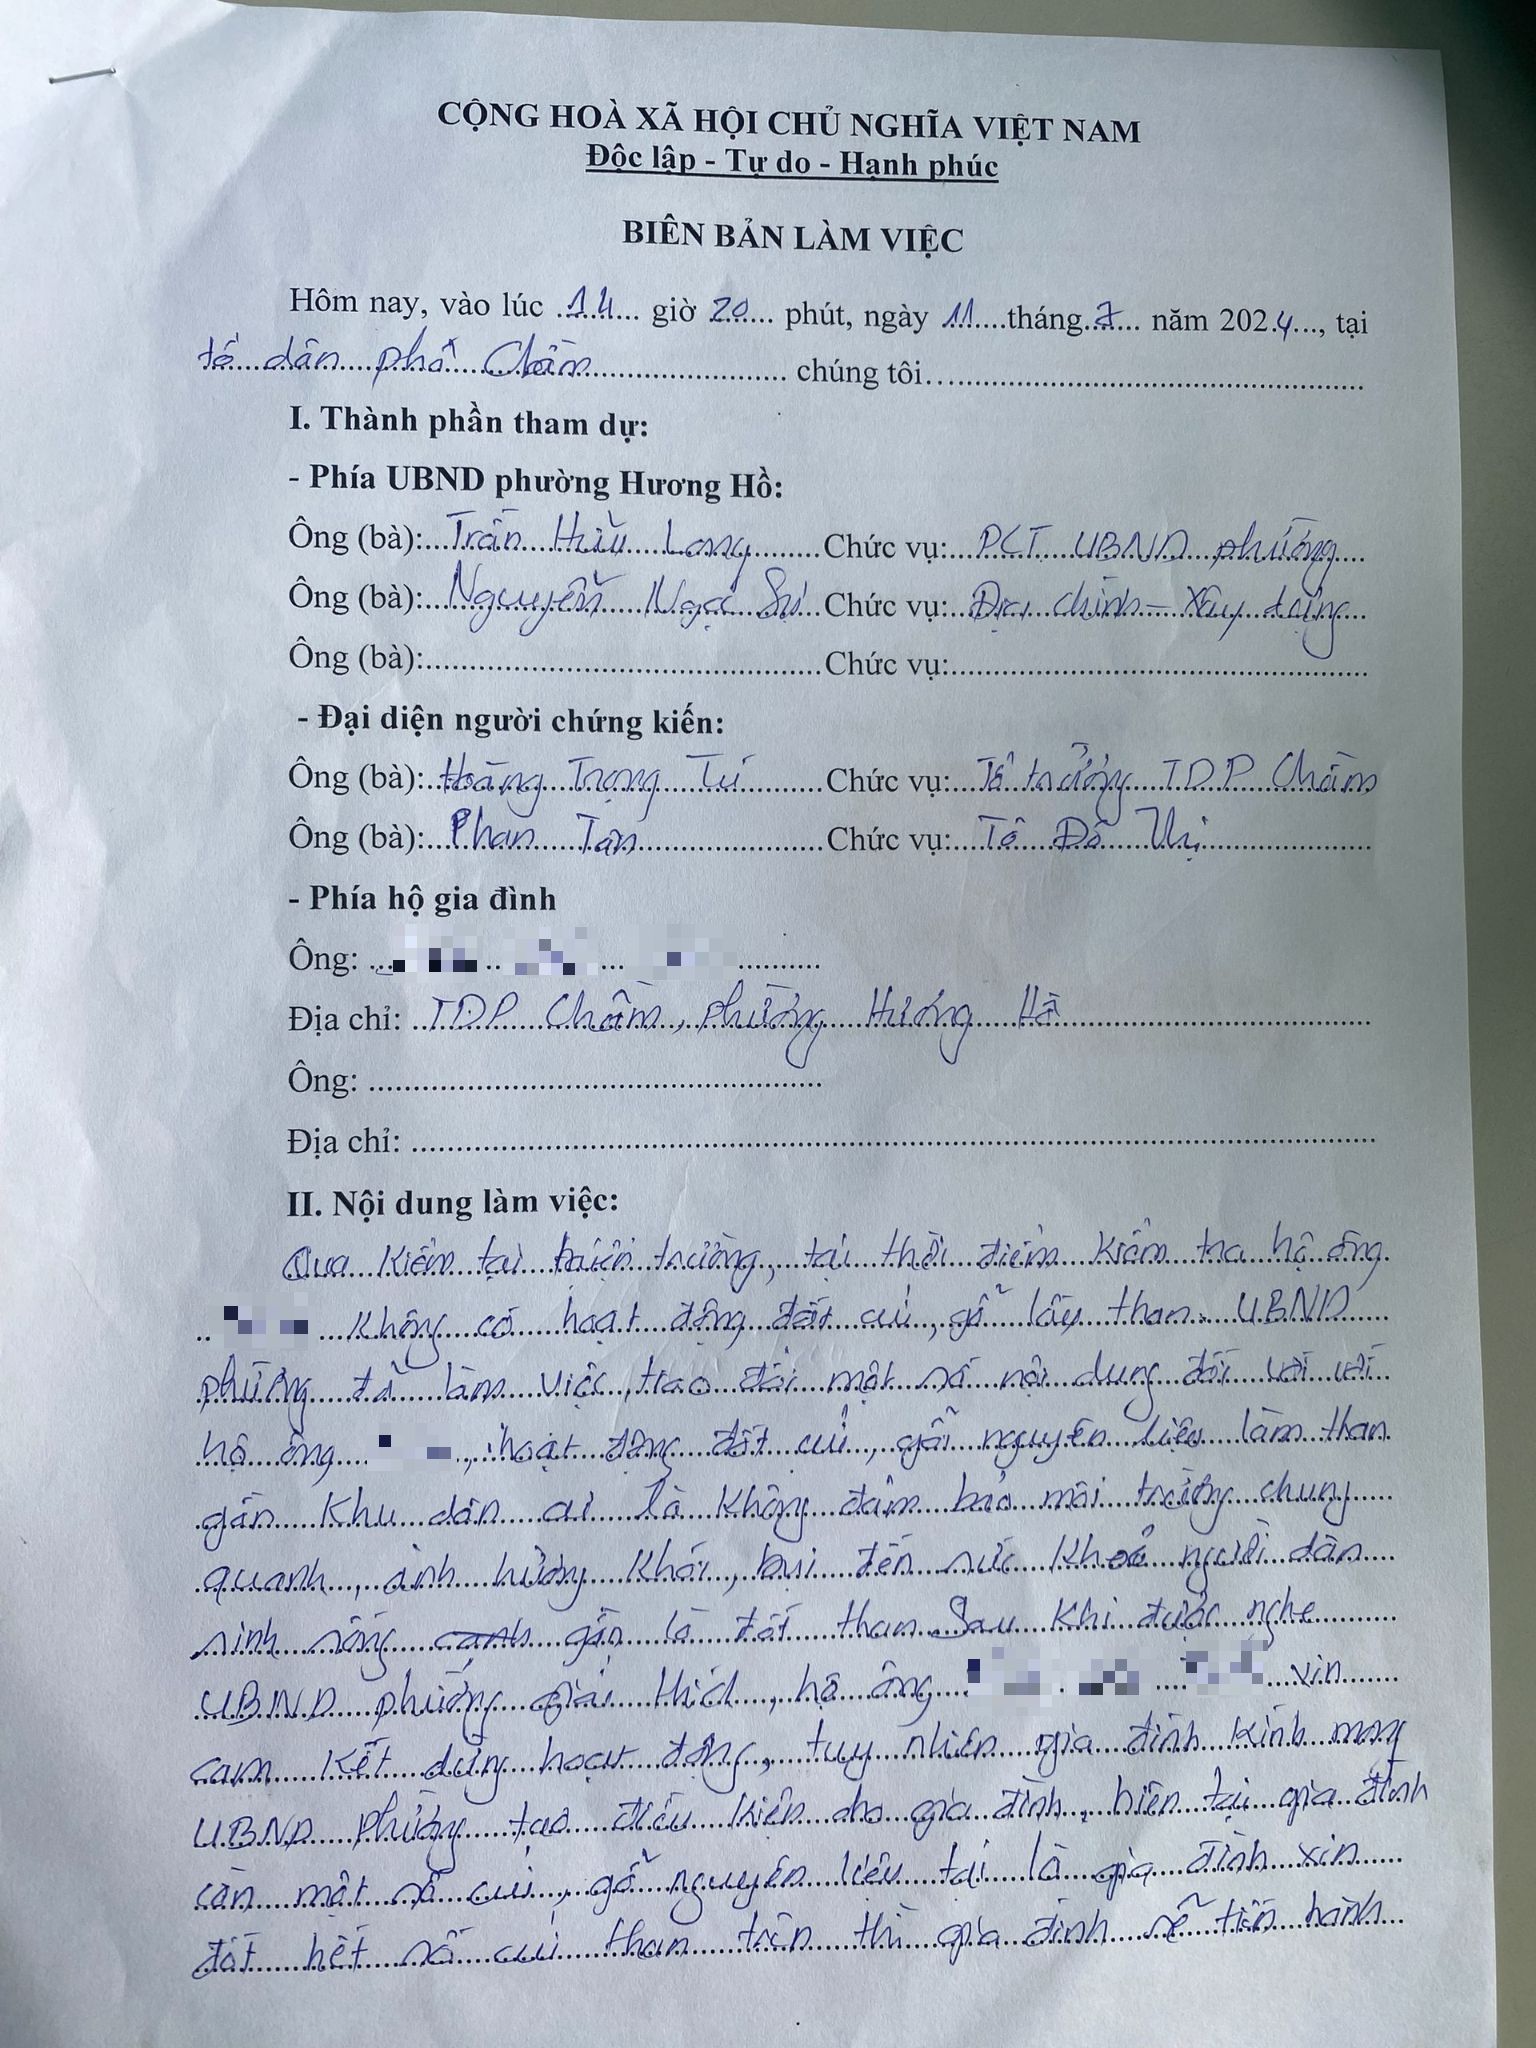 CỘNG HOÀ XÃ HỘI CHỦ NGHĨA VIỆT NAM
Độc lập - Tự do - Hạnh phúc
BIÊN BẢN LÀM VIỆC
Hôm nay, vào lúc 14 giờ 20 phút, ngày 11 tháng 7 năm 2024, tại
tổ dân phố Chầm chúng tôi
I. Thành phần tham dự:
- Phía UBND phường Hương Hồ:
Ông (bà): Trần Hữu Long Chức vụ: PCT UBND phường
Ông (bà): Nguyễn Ngọc Chức vụ: Địa chính - Xây dựng
Ông (bà): Chức vụ:
- Đại diện người chứng kiến:
Ông (bà): Hoàng Trọng Tú Chức vụ: Tổ trưởng TDP Chầm
Ông (bà): Phan Tân Chức vụ: Tổ Đô Thị
- Phía hộ gia đình
Ông:
Địa chỉ: TDP Chầm, phường Hương Hồ
Ông:
Địa chỉ:
II. Nội dung làm việc:
Qua kiểm tại hiện trường, tại thời điểm kiểm tra hộ ông
không có hoạt động đốt củi, gỗ lấy than. UBND
phường đã làm việc, trao đổi một số nội dung đối với với
hộ ông , hoạt động đốt củi, gỗ nguyên liệu làm than
gần khu dân cư là không đảm bảo môi trường chung
quanh, ảnh hưởng khói, bụi đến sức khoẻ người dân
sinh sống cạnh gần lò đốt than Sau khi được nghe
UBND phường giải thích, hộ ông xin
cam kết dừng hoạt động, tuy nhiên gia đình kính mong
UBND phường tạo điều kiện cho gia đình, hiện tại gia đình
còn một số củi, gỗ nguyên liệu tại lò gia đình xin
đốt hết số củi than trên thì gia đình sẽ tiến hành